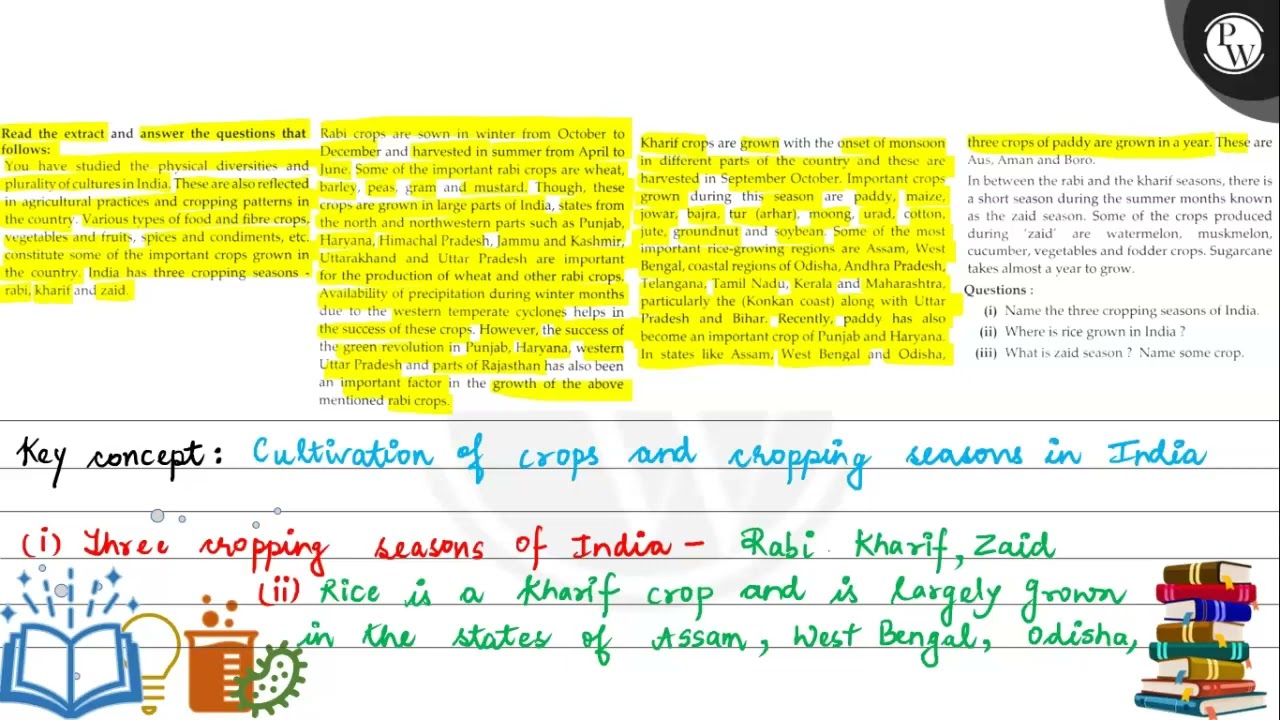 PW
Read the extract and answer the questions that
follows:
You have studied the physical diversities and
plurality of cultures in India. These are also reflected
in agricultural practices and cropping patterns in
the country. Various types of food and fibre crops,
vegetables and fruits, spices and condiments, etc.
constitute some of the important crops grown in
the country. India has three cropping seasons -
rabi, kharif and zaid.
Rabi crops are sown in winter from October to
December and harvested in summer from April to
June. Some of the important rabi crops are wheat,
barley, peas, gram and mustard. Though, these
crops are grown in large parts of India, states from
the north and northwestern parts such as Punjab,
Haryana, Himachal Pradesh, Jammu and Kashmir,
Uttarakhand and Uttar Pradesh are important
for the production of wheat and other rabi crops.
Availability of precipitation during winter months
due to the western temperate cyclones helps in
the success of these crops. However, the success of
the green revolution in Punjab, Haryana, western
Uttar Pradesh and parts of Rajasthan has also been
an important factor in the growth of the above
mentioned rabi crops.
Kharif crops are grown with the onset of monsoon
in different parts of the country and these are
harvested in September October. Important crops
grown during this season are paddy, maize,
jowar, bajra, tur (arhar), moong, urad, cotton,
jute, groundnut and soybean. Some of the most
important rice-growing regions are Assam, West
Bengal, coastal regions of Odisha, Andhra Pradesh,
Telangana, Tamil Nadu, Kerala and Maharashtra,
particularly the (Konkan coast) along with Uttar
Pradesh and Bihar. Recently, paddy has also
become an important crop of Punjab and Haryana.
In states like Assam, West Bengal and Odisha,
three crops of paddy are grown in a year. These are
Aus, Aman and Boro.
In between the rabi and the kharif seasons, there is
a short season during the summer months known
as the zaid season. Some of the crops produced
during 'zaid' are watermelon, muskmelon,
cucumber, vegetables and fodder crops. Sugarcane
takes almost a year to grow.
Questions :
(i) Name the three cropping seasons of India.
(ii) Where is rice grown in India ?
(iii) What is zaid season ? Name some crop.
Key concept: Cultivation of crops and cropping seasons in India
(i) Three cropping seasons of India - Rabi Kharif, Zaid
(ii) Rice is a Kharif crop and is largely grown
in the states of Assam, West Bengal, Odisha,